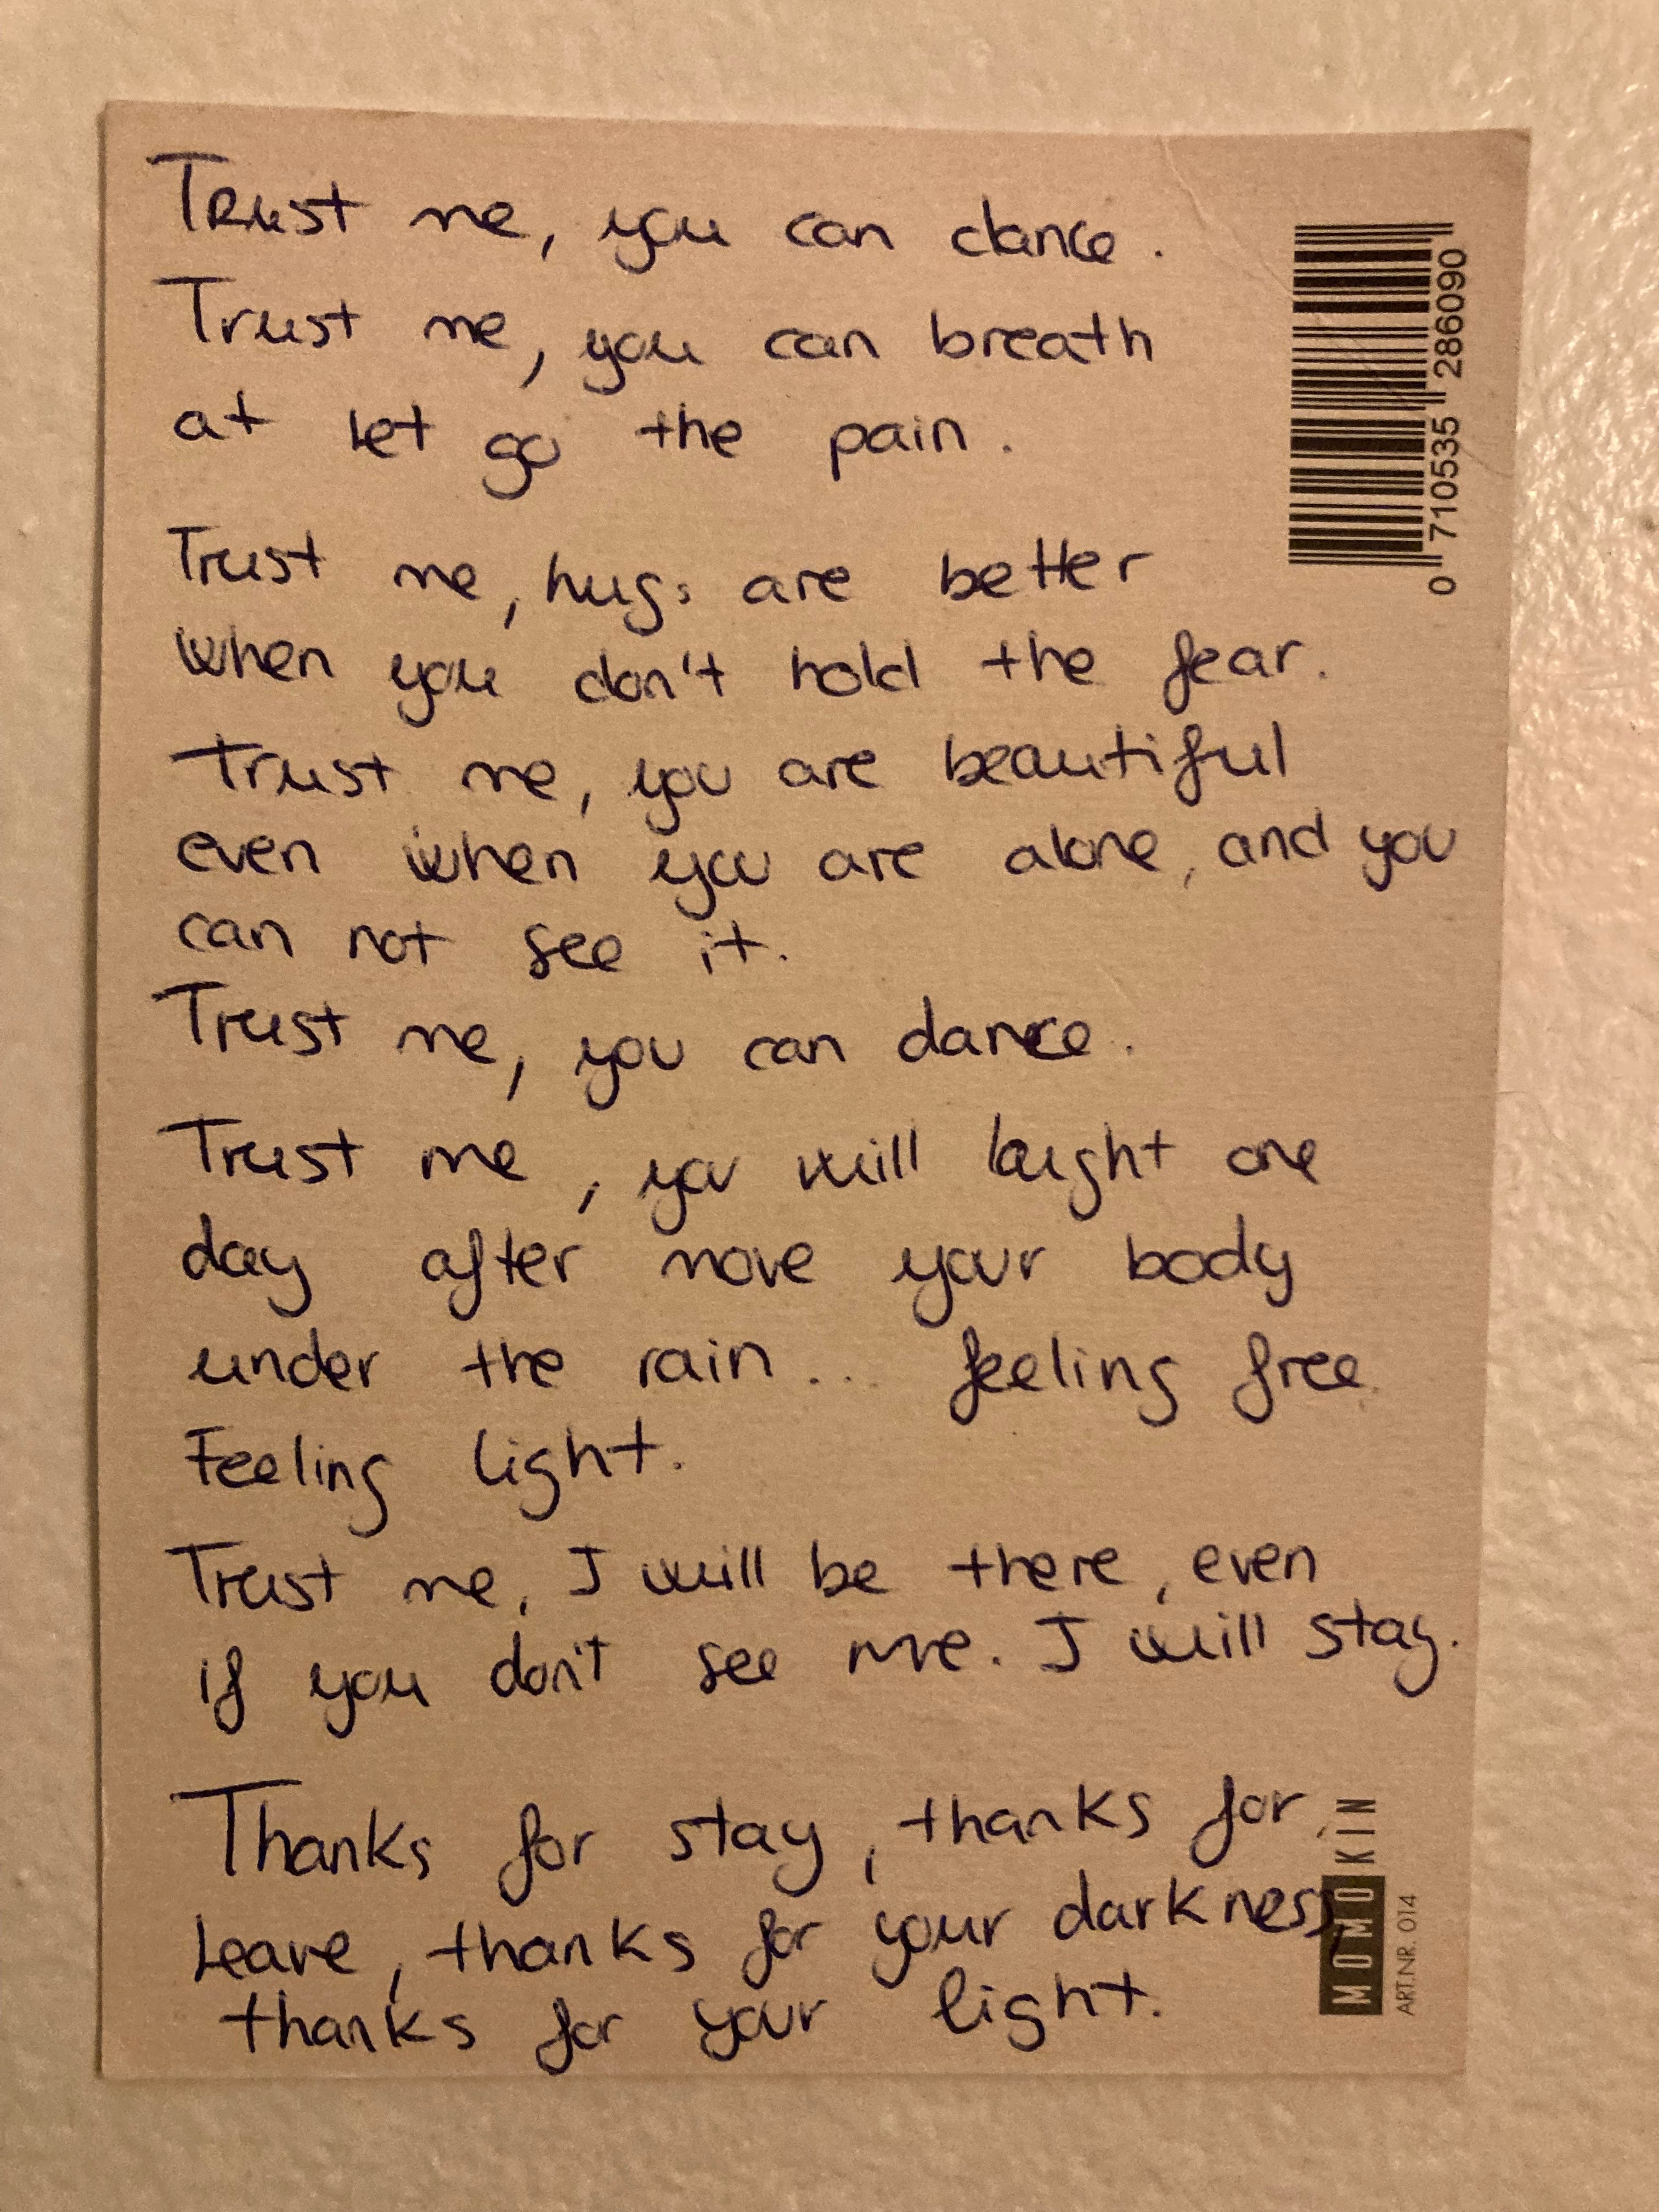 Trust me, you can dance.
Trust me, you can breath
at let go the pain.
Trust me, hugs are better
when you don't hold the fear.
Trust me, you are beautiful
even when you are alone, and you
can not see it.
Trust me, you can dance.
Trust me, you will laught one
day after move your body
under the rain... feeling free.
Feeling light.
Trust me, I will be there, even
if you don't see me. I will stay.
Thanks for stay, thanks for
leave, thanks for your darkness,
thanks for your light.
0 710535 286090
MOMOKIN
ART.NR. 014